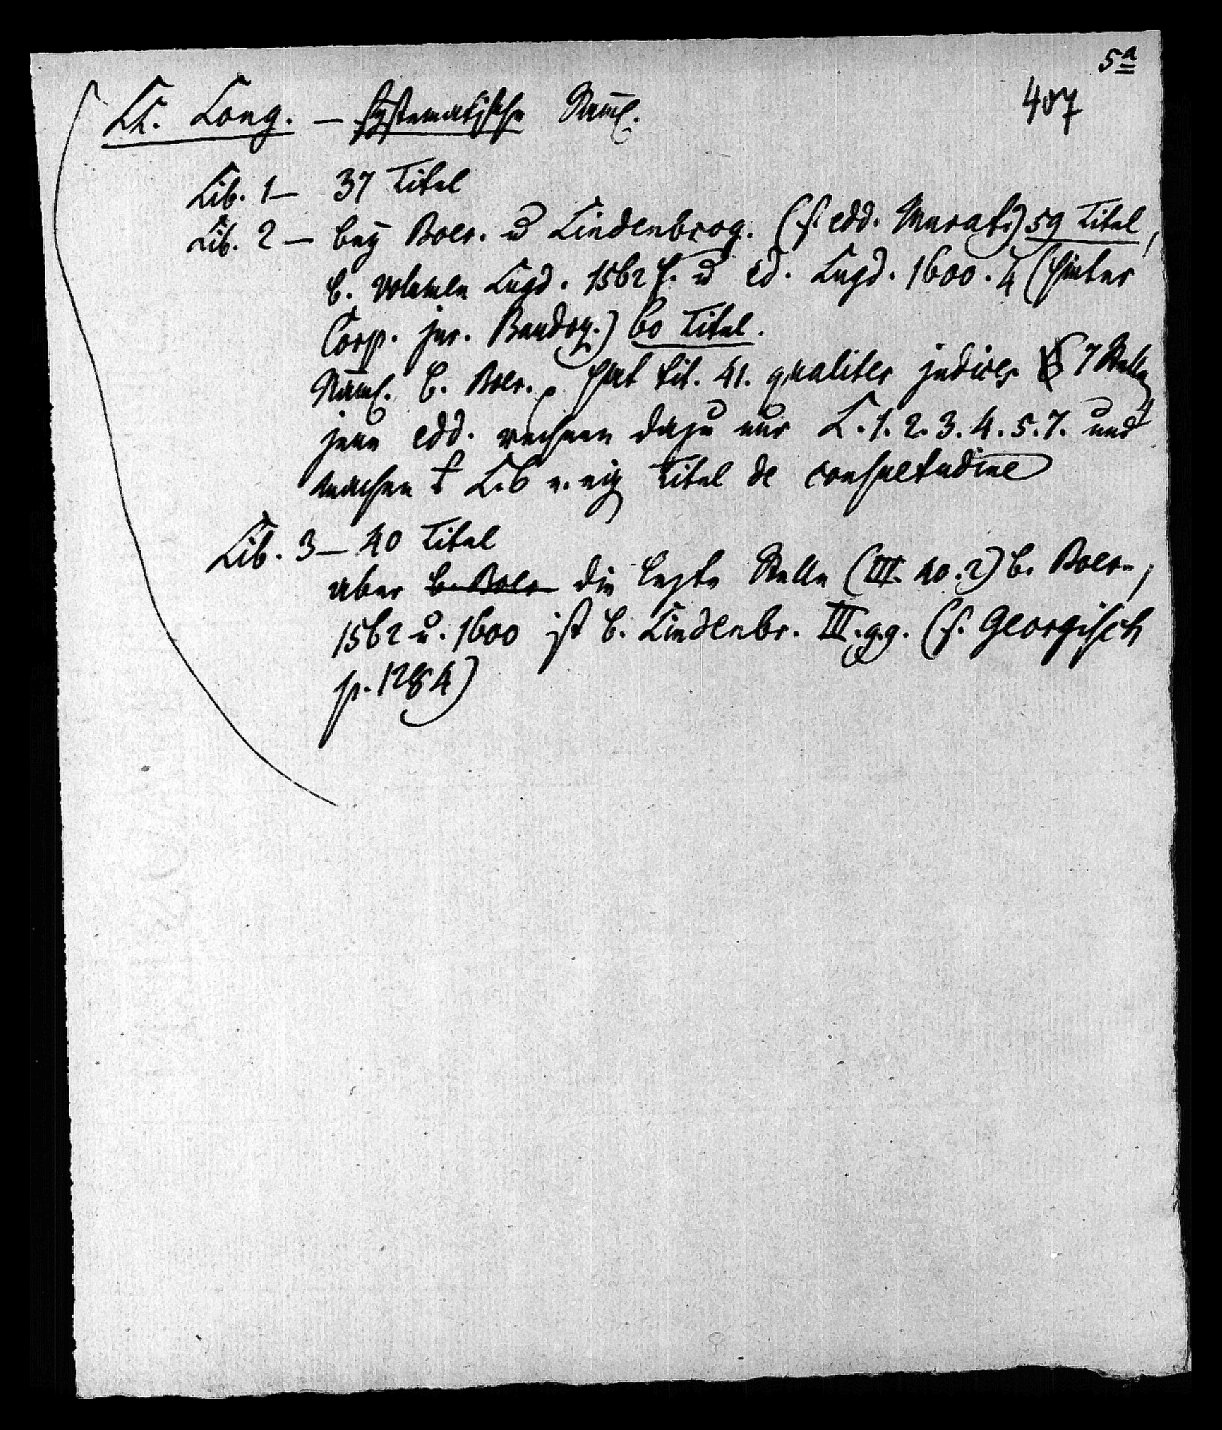 5a
407
LL. Long. — systematische Saml.
Lib. 1 — 37 Titel
Lib. 2 — bey Boer. u Lindenbrog. (s. edd. Murat.) 59 Titel,
b. volumen Lugd. 1562 f. u ed. Lugd. 1600. 4 (hinter
Corp. jur. Baudoz.) 60 Titel.
Näml. b. Boer. hat tit. 41. qualiter judices 7 Stellen
jene edd. rechnen dazu nur L. 1. 2. 3. 4. 5. 7. und
machen L. 6 z. eig Titel de consuetudine
Lib. 3 — 40 Titel
aber b. Boer die lezte Stelle (III. 40. 2) b. Boer.,
1562 u. 1600 ist b. Lindenbr. III. 9.9. (s. Georgisch
p. 1284)